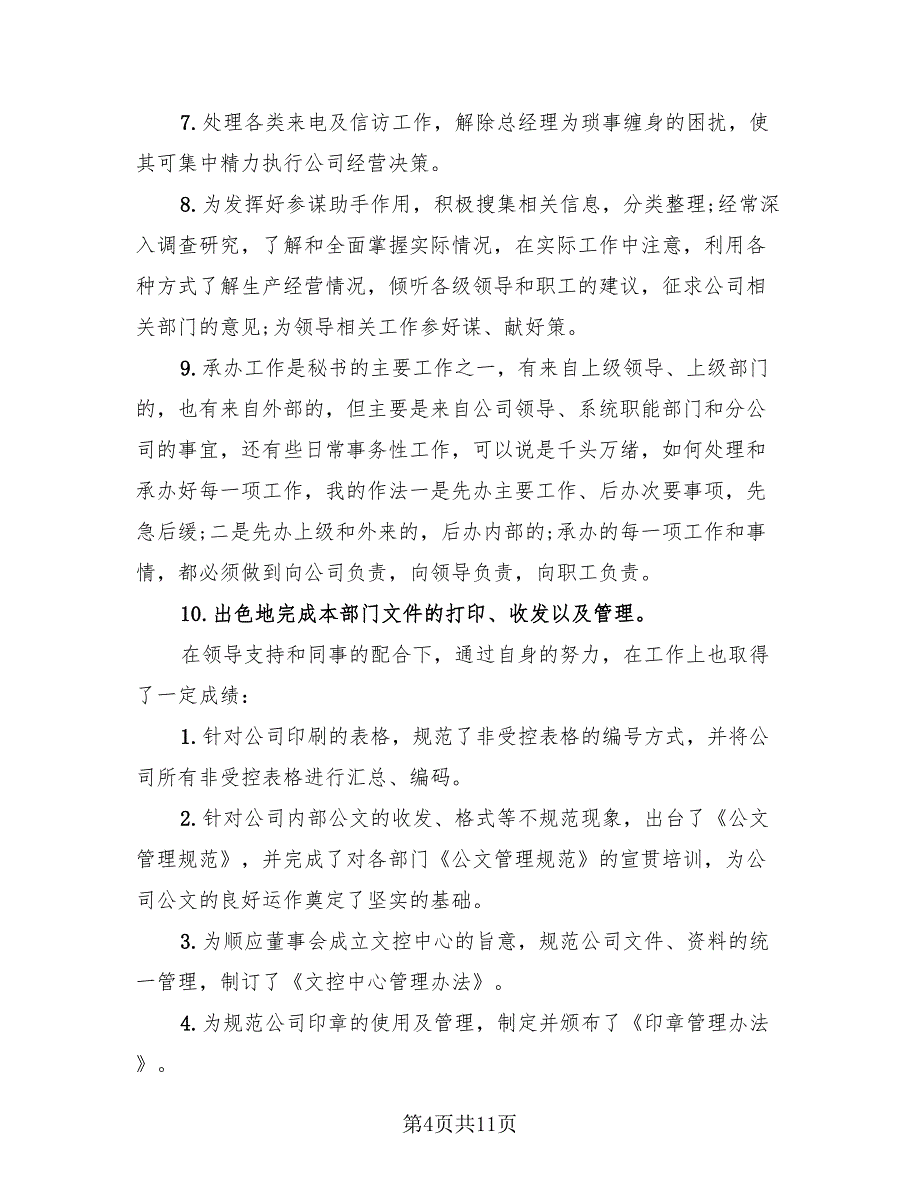 7. 处理各类来电及信访工作，解除总经理为琐事缠身的困扰，使
其可集中精力执行公司经营决策。
8. 为发挥好参谋助手作用，积极搜集相关信息，分类整理;经常深
入调查研究，了解和全面掌握实际情况，在实际工作中注意，利用各
种方式了解生产经营情况，倾听各级领导和职工的建议，征求公司相
关部门的意见;为领导相关工作参好谋、献好策。
9. 承办工作是秘书的主要工作之一，有来自上级领导、上级部门
的，也有来自外部的，但主要是来自公司领导、系统职能部门和分公
司的事宜，还有些日常事务性工作，可以说是千头万绪，如何处理和
承办好每一项工作，我的作法一是先办主要工作、后办次要事项，先
急后缓;二是先办上级和外来的，后办内部的;承办的每一项工作和事
情，都必须做到向公司负责，向领导负责，向职工负责。
10. 出色地完成本部门文件的打印、收发以及管理。
在领导支持和同事的配合下，通过自身的努力，在工作上也取得
了一定成绩：
1. 针对公司印刷的表格，规范了非受控表格的编号方式，并将公
司所有非受控表格进行汇总、编码。
2. 针对公司内部公文的收发、格式等不规范现象，出台了《公文
管理规范》，并完成了对各部门《公文管理规范》的宣贯培训，为公
司公文的良好运作奠定了坚实的基础。
3. 为顺应董事会成立文控中心的旨意，规范公司文件、资料的统
一管理，制订了《文控中心管理办法》。
4. 为规范公司印章的使用及管理，制定并颁布了《印章管理办法
》。
第4页共11页